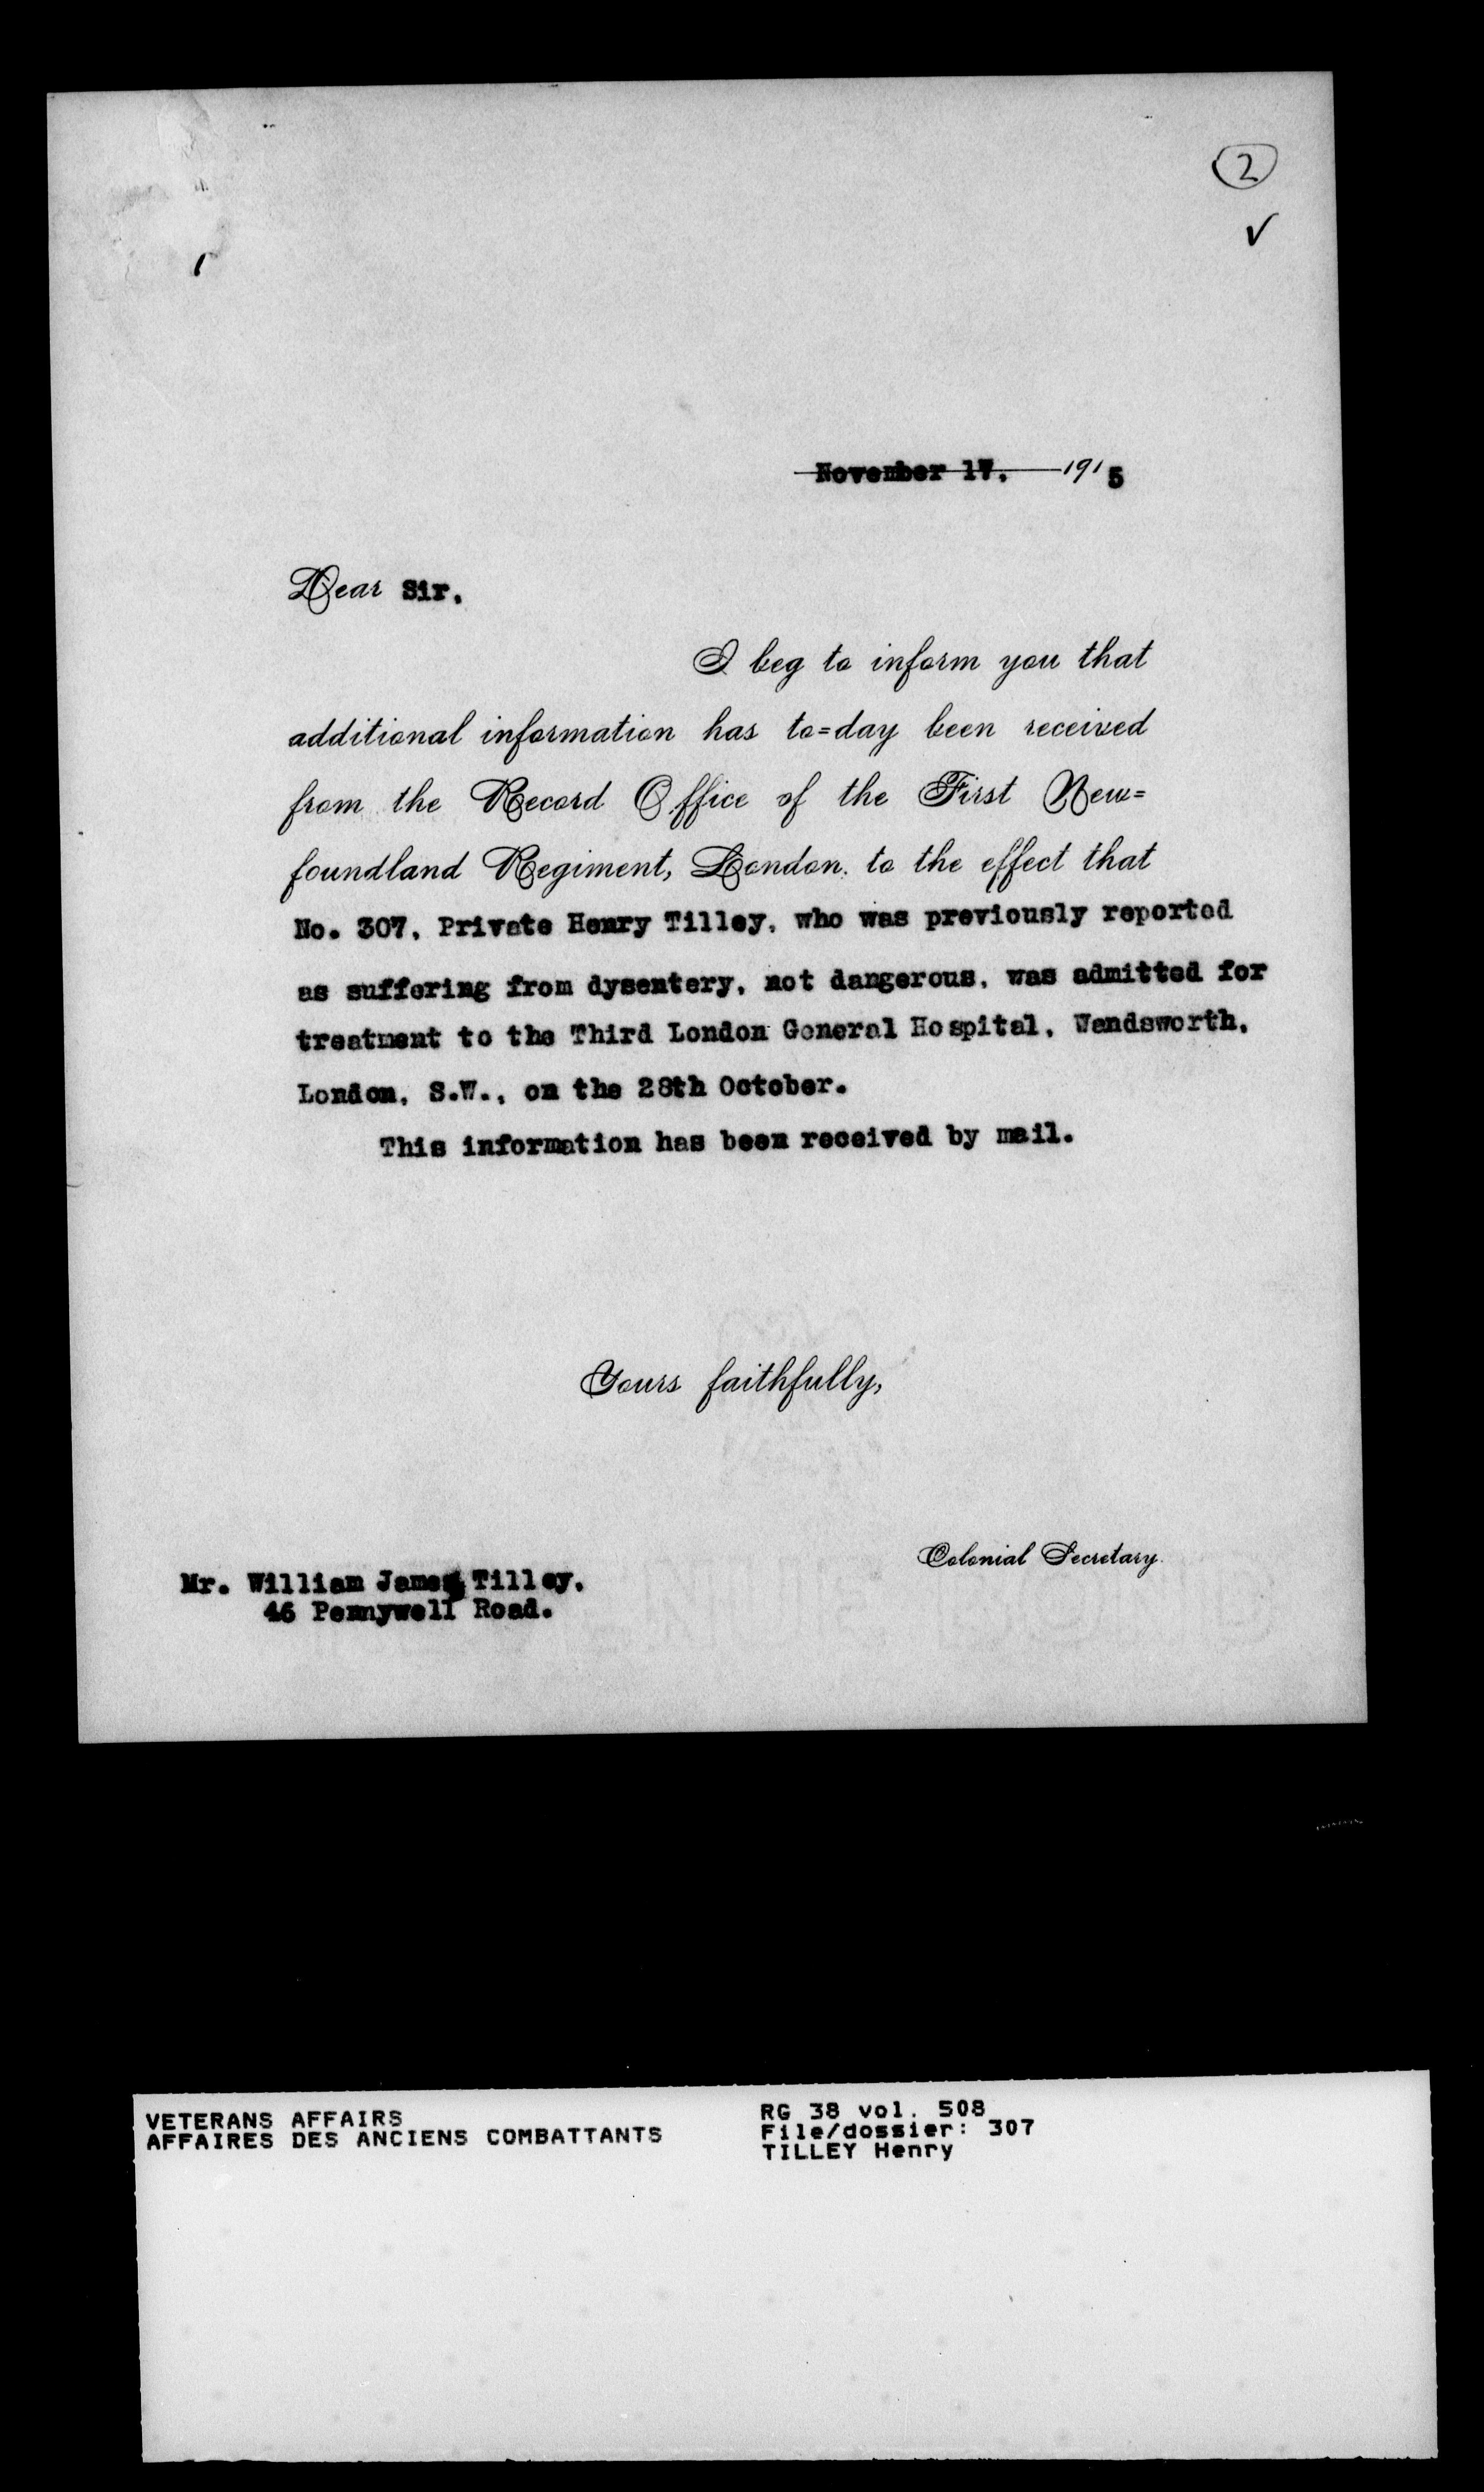 2
✓
November 17, 1915
Dear Sir,
I beg to inform you that
additional information has to=day been received
from the Record Office of the First New=
foundland Regiment, London, to the effect that
No. 307, Private Henry Tilley, who was previously reported
as suffering from dysentery, not dangerous, was admitted for
treatment to the Third London General Hospital, Wandsworth,
London, S.W., on the 28th October.
This information has been received by mail.
Yours faithfully,
Colonial Secretary.
Mr. William James Tilley,
46 Pennywell Road.
VETERANS AFFAIRS
AFFAIRES DES ANCIENS COMBATTANTS
RG 38 vol. 508
File/dossier: 307
TILLEY Henry